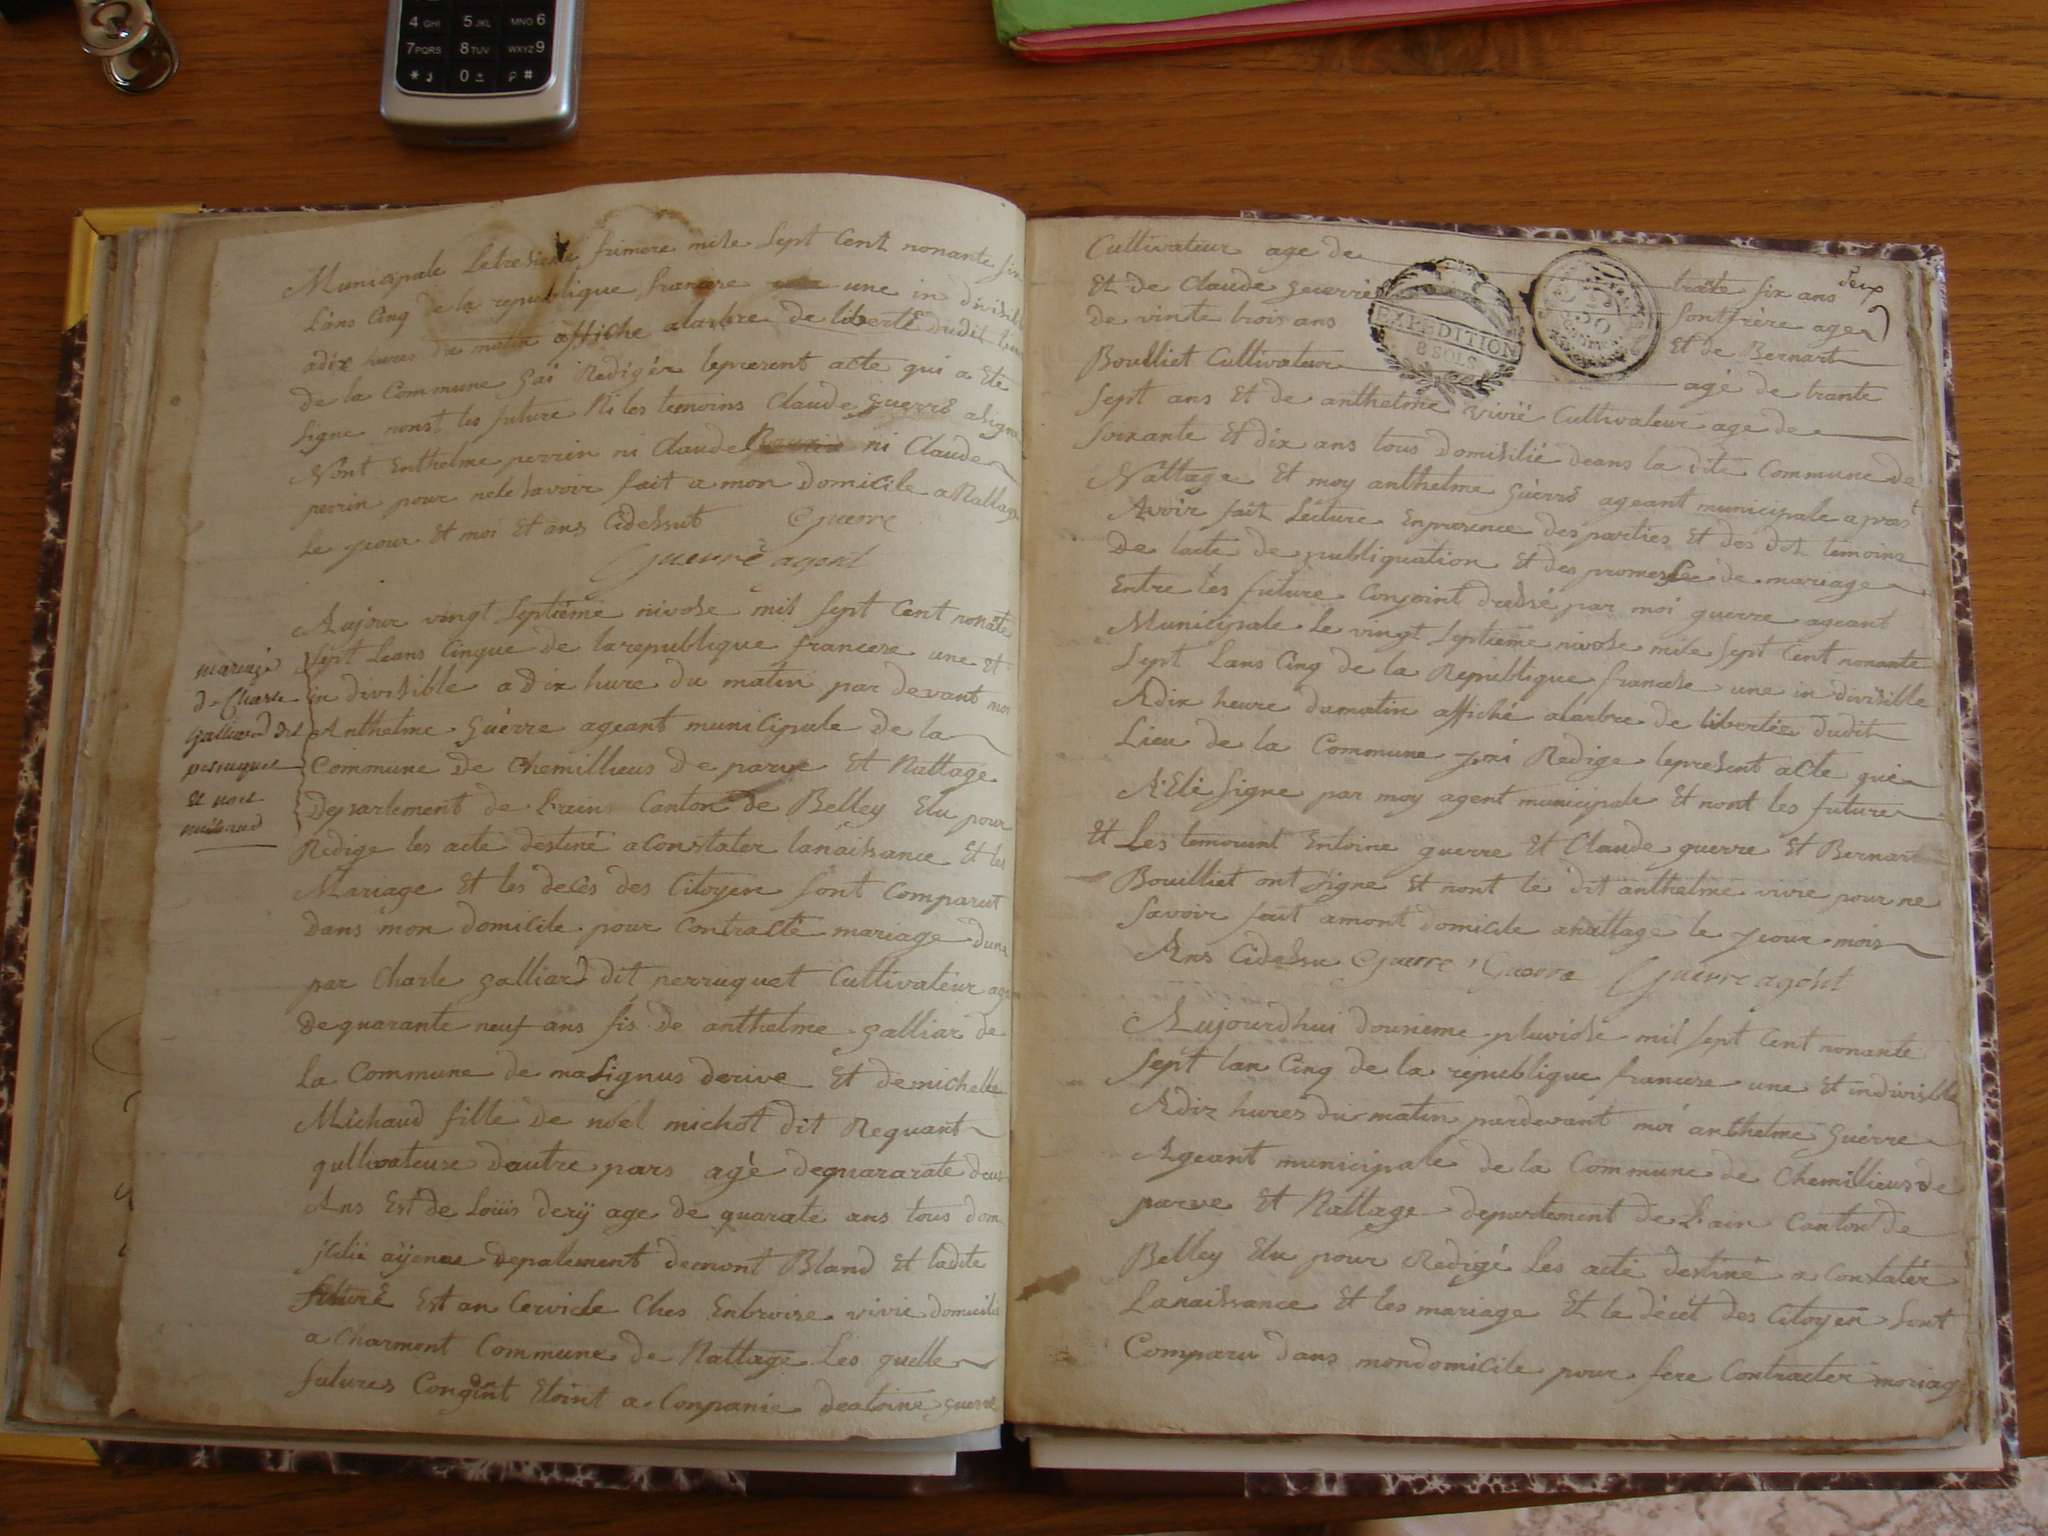 4 GHI 5 JKL MNO 6
7 PQRS 8 TUV WXYZ 9
* 0 ± #
Municipale Letresieme frimere mile Sept Cent nonante six
Lans Cinq de la republique francere une in divisible
adix hures du matin affiche alarbre de liberté dudit lieu
de la Commune Jai Redigér lepresent acte qui a Ete
Signe nonst les future Ni les temoins Claude guerré asigne
Nont Enthelme perrin ni Claude ni Claude
perrin pour nele Savoir fait a mon Domicile a Nattage
Le jour Et moi Et ans Cidessut Guerre
Guerré agent
Aujour vingt Septiéme nivose mil Sept Cent nonate
Sept Leans Cinque de la republique francere une Et
in divisible a Dix hure du matin par devant moi
Anthelme Guérre ageant municipale De la
Commune De Chemillieus De parve Et Nattage
Departement de Lains Canton de Belley Elu pour
Redige les acte destiné aConstater lanaissance Et les
Mariage Et les decés des Citoyen Sont Comparut
Dans mon domicile pour Contracté mariage dune
par Charle galliard dit perruquet Cultivateur age
De quarante neuf ans fis de anthelme galliar de
la Commune de maSignus derive Et de michelle
Michaud fille de noél michot dit Requant
qultivateuse dautre pars agé dequararate deux
Ans Est de Loüis derÿ age de quarate ans tous dom
icilié aÿenne depalement demont Bland Et ladite
future Est an Cervicle Ches Enbroise vivie domicile
a Charmont Commune de Nattage Les quelle
futures Congoint Etoint a Conpanie deatoine guerre
mariage
de Charle
galliard dit
perruquet
Et noel
michaud
deux
Cultivateur age de trate six ans
Et de Claude guerre Sont frère age
de vinte trois ans Et de Bernart
Boulliet Cultivateur agé de trante
Sept ans Et de anthelme vivië Cultivateur age de
Soixante Et dix ans tous Domisilié deans la dite Commune de
Nattage Et moy anthelme guérré ageant municipale a prast
Avoir fait Lecture Enpresence des parties Et des dit temoins
De lacte de publiquation Et des promesse de mariage
Entre les future Conjoint dressé par moi guerre ageant
Municipale Le vingt Septieme nivose mile Sept Cent nonante
Sept Lans Cinq de la Republique francése une in divisible
Adix heure dumatin affiché alarbre de libertée dudit
Lieu de la Commune jai Redige lepresent acte qui
A Eté Signe par moy agent municipale Et nont les future
Et Les temoiunt Entoine guerre Et Claude guerre Et Bernart
Bouilliet ont Signe Et nont le dit anthelme vivie pour ne
Savoir fait amont domicile anattage le jour mois
Ans Cidessu Guerre Guerre Guerre agent
EXPEDITION
8 SOLS
50
Aujourdhui dousieme pluviose mil Sept Cent nonante
Sept lan Cinq de la republique francere une Et indivisible
Adix hures du matin pardevant moi anthelme Guérre
Ageant municipale de la Commune de Chemillieus de
parve Et Nattage departement de Lain Canton de
Belley Elu pour Redigé Les acte destiné a Constatér
Lanaissance Et les mariage Et le décét des Citoyen Sont
Comparu dans mondomicile pour fere Contracter mariag